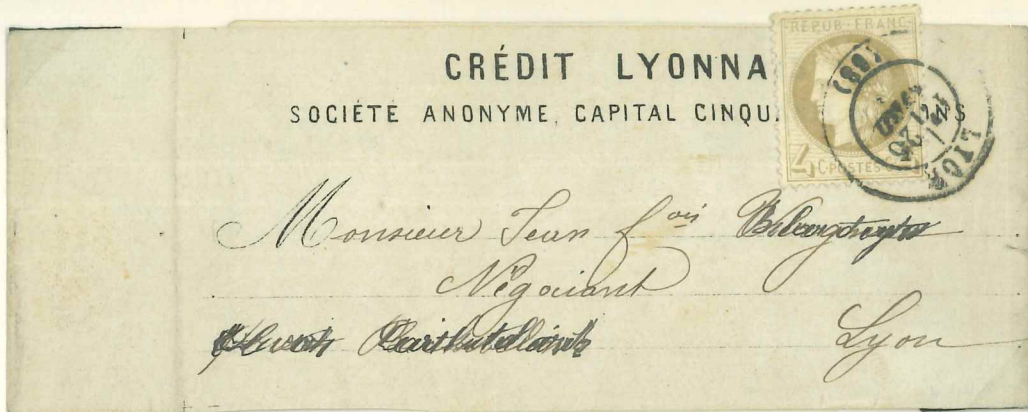 CRÉDIT LYONNA
SOCIÉTÉ ANONYME, CAPITAL CINQU. NS
REPUB·FRANC
4 C POSTES
(68)
LYON
Monsieur Jean f.ois
Négociant
Lyon